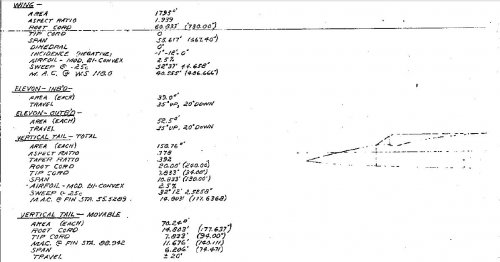 WING -
AREA 1795 ▫'
ASPECT RATIO 1.739
ROOT CORD 60.833' (730.00")
TIP CORD 0
SPAN 55.617' (667.40")
DIHEDRAL 0°
INCIDENCE (NEGATIVE) -1°-18'-0"
AIRFOIL - MOD. BI-CONVEX 2.5%
SWEEP @ .25c 52°37' 44.658"
M. A. C. @ W.S 118.0 40.555' (486.666")
ELEVON - INB'D -
AREA (EACH) 39.0 ▫'
TRAVEL 35° UP, 20° DOWN
ELEVON - OUTB'D -
AREA (EACH) 52.5 ▫'
TRAVEL 35° UP, 20° DOWN
VERTICAL TAIL - TOTAL
AREA (EACH) 150.76 ▫'
ASPECT RATIO .778
TAPER RATIO .392
ROOT CORD 20.00' (240.00)
TIP CORD 7.833' (94.00")
SPAN 10.833' (130.00")
AIRFOIL - MOD. BI-CONVEX 2.5%
SWEEP @ .25c
M. A. C. @ FIN STA. 55.5285 14.803' (177.6368)
VERTICAL TAIL - MOVABLE
AREA (EACH) 70.24 ▫'
ROOT CORD 14.803' (177.637")
TIP CORD 7.833' (94.00")
MAC. @ FIN STA. 88.942 11.676' (140.111)
SPAN 6.206' (74.471)
TRAVEL ± 20°